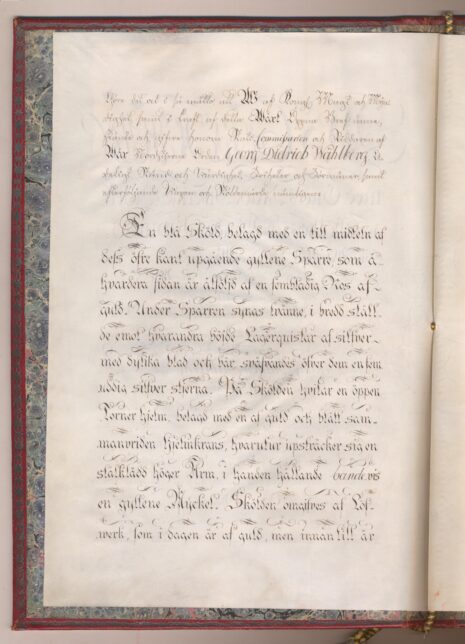 som i så måtto, att Wi af Kongl. Magt och
dighet samt i kraft af detta Wårt Öppna Bref unna,
och gifve honom Commissarien och Riddaren af
Wår Nordstjerne Orden Georg Didrich Wåhlberg,
Adeliga Stånd och Wärdighet, Fördelar och Förmåner, samt
efterföljande Wapen och Sköldemärke, nämligen:
En blå Sköld, belagd med en till midteln af
deſs öfre kant upgående gyllene Sparre, som å
hvardera sidan är åtföljd af en fembladig Ros af
guld. Under Sparren synas tvänne, i bredd ställ-
de emot hvarandra böjde Lagerqvistar af silfver
med dylika blad och bär, svafvandes öfver dem en sex
uddig silfver stjerna. På Skölden hvilar en öppen
Torner hjelm, belagd med en af guld och blått sam-
manvriden hjelmkrans, hvarutur upsträcker sig en
stålklädd höger Arm, i handen hållande bandevis
en gyllene Nyckel. Skölden omgifves af Löf-
werk, som i dagen är af guld, men innan till är